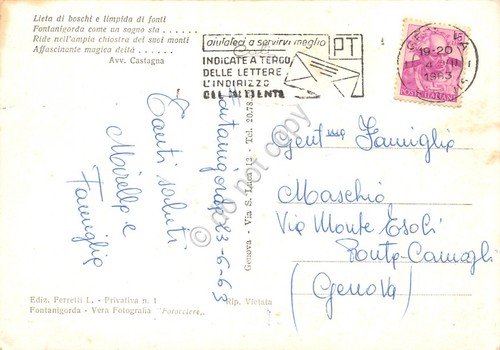 Lieta di boschi e limpida di fonti
Fontanigorda come un sogno sta . . . . . .
Ride nell'ampia chiostra dei suoi monti
Affascinante magica deità . . . . . .
Avv. Castagna
aiutateci a servirvi meglio
PT
INDICATE A TERGO
DELLE LETTERE
L'INDIRIZZO
DEL MITTENTE
GENOVA
19-20
1963
Fontanigorda 23-6-63
Tanti saluti
Mirella e
Famiglia
Gent me Famiglia
Maschio
Via Monte Esoli
Ponte Camogli
(Genova)
do not copy
Genova - Via S. Luca 12 - Tel. 20.78
Ediz. Ferretti L. - Privativa n. 1
Fontanigorda - Vera Fotografia "Fotocelere"
Rip. Vietata